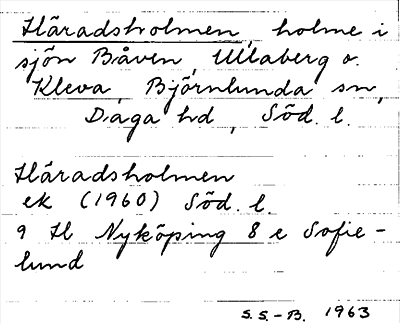 Häradsholmen, holme i
sjön Båven, Ullaberg o.
Kleva, Björnlunda sn,
Daga hd, Söd. l.
Häradsholmen
ek (1960) Söd. l.
9 H Nyköping 8 e Sofie-
lund
S.S.-B. 1963